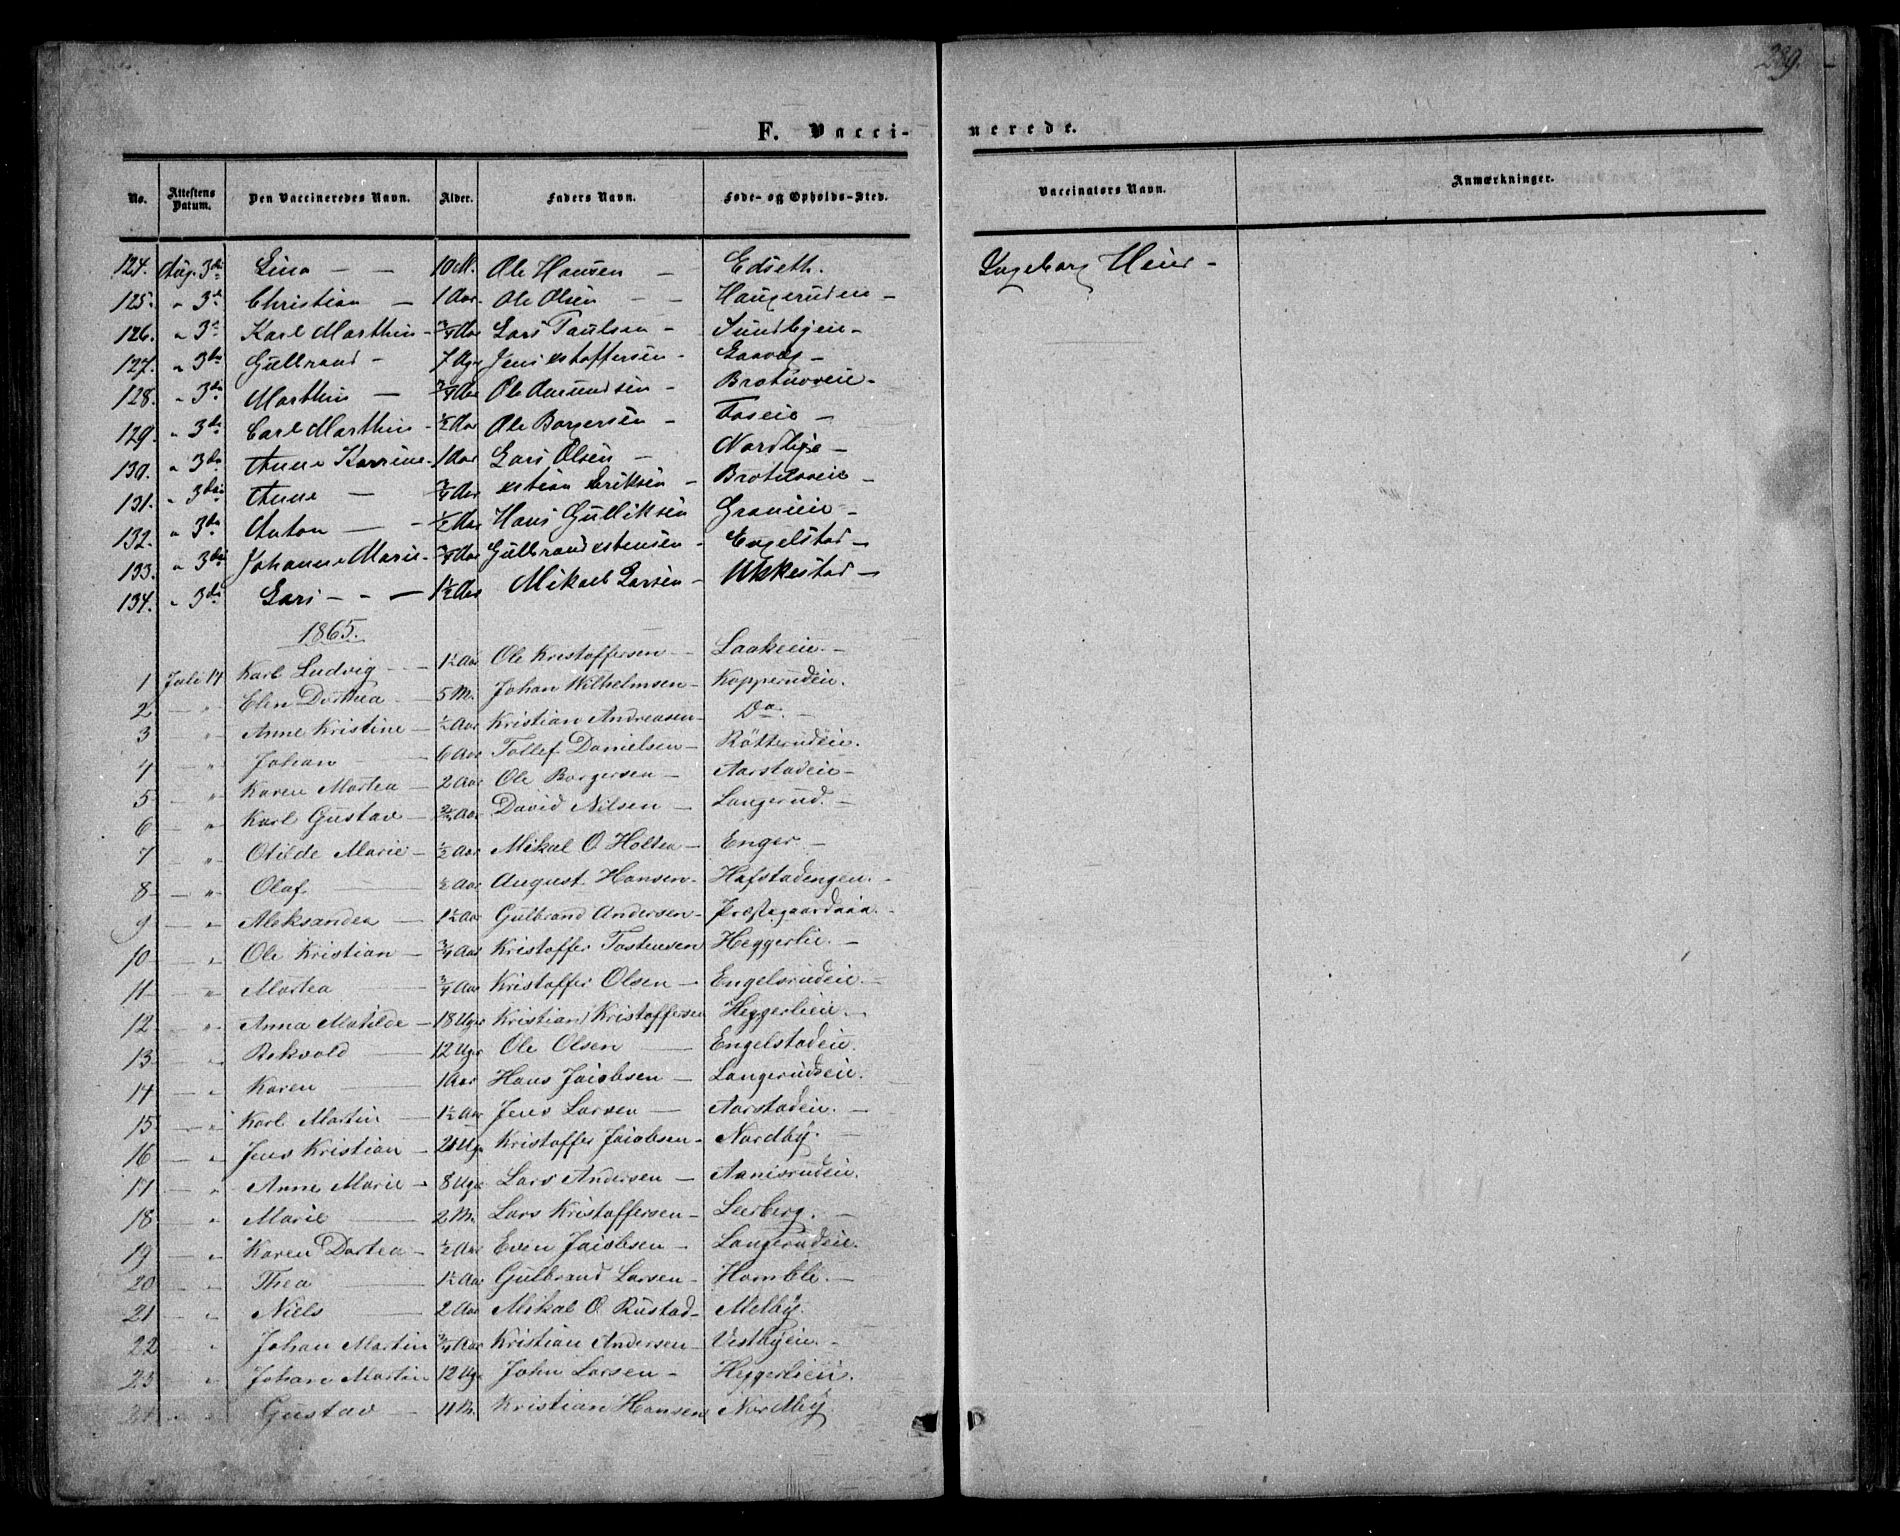 289.
F. Vacci-nerede.
No. Attestens Datum. Den Vaccineredes Navn. Alder. Faders Navn. Føde- og Opholds-Sted. Vaccinators Navn. Anmærkninger.
124. Aug. 3die Lina — — 10 M. Ole Hansen — Edseth. Ingeborg Heier -
125. " 3d Christian — 1 Aar. Ole Olsen — — Haugeruden —
126. " 3d Karl Marthin - 3/4 Aar Lars Paulsen - Sundbyeie —
127. " 3die Gulbrand - 7 Ugr Jens Xstoffersen -
128. " 3die Marthin — 3/4 Aar Ole Amundsen -
129. " 3die Carl Marthin - 1/2 Aar Ole Borgersen - Foseie —
130. " 3die Anne Karrine - 1 Aar Lars Olsen — Nordbye —
131. " 3die Anne — 3/4 Aar Xstian Eriksen -
132. " 3die Anton — - 1/2 Aar Hans Gulliksen Graneie —
133. " 3die Johanne Marie - 3/4 Aar Gulbrand Xstensen - Engelstad —
134. " 3die Lars — - — 1 1/2 Aar Mikael Larsen - Ukkestad —
1865.
1 Juli 14 Karl Ludvig — 1 1/2 Aar Ole Kristoffersen — Laakeeie. —
2 — " Elen Dorthea — 5 M. Johan Wilhelmsen — Kopperudeie.
3 — " Anne Kristine — 1/2 Aar Kristian Andreasen — Do. —
4 — " Johan — 6 Aar Tollef Danielsen — Røtterudeie.
5 — " Karen Martea — 2 Aar Ole Borgersen — Aarstadeie —
6 — " Karl Gustav — 3/4 Aar David Nilsen — Langerud. —
7 — " Otilde Marie — 1/2 Aar Mikal O. Holten — Enger —
8 — " Olaf. — 1/2 Aar August Hansen — Hafstadengen. —
9 — " Aleksandea — 1 1/2 Aar Gulbrand Andersen —
10 — " Ole Kristian — 3/4 Aar Kristoffer Tostensen Heggerlie. —
11 — " Martea — 3/4 Aar Kristoffer Olsen — Engelsrudeie —
12 — " Anna Matilde — 18 Uger Kristian Kristoffersen Heggerlieie. —
13 — " Rikvold — 12 Ugr Ole Olsen — Engelstadeie.
14 — " Karen — 1 Aar Hans Jacobsen — Langerudeie.
15 — " Karl Martin — 1 1/2 Aar Jens Larsen — Aarstadeie. —
16 — " Jens Kristian — Ugr Kristoffer Jacobsen — Nordby. —
17 — " Anne Marie — 8 Ugr Lars Andersen — Aanisrudeie.
18 — " Marie — 2 M. Lars Kristoffersen — Leerberg. —
19 — " Karen Dortea — 1/2 Aar Even Jacobsen — Langerudeie.
20 — " Thea — 1 1/2 Aar Gulbrand Larsen — Homble. —
21 — " Niels — 2 Aar Mikal O. Rustad — Melby.
22 — " Johan Martin 3/4 Aar Kristian Andersen — Vestbyeie. —
23 — " Johan Martin 12 Ugr John Larsen — Heggerlieie.
24 — " Gustav — 11 M. Kristian Hansen Nordby.